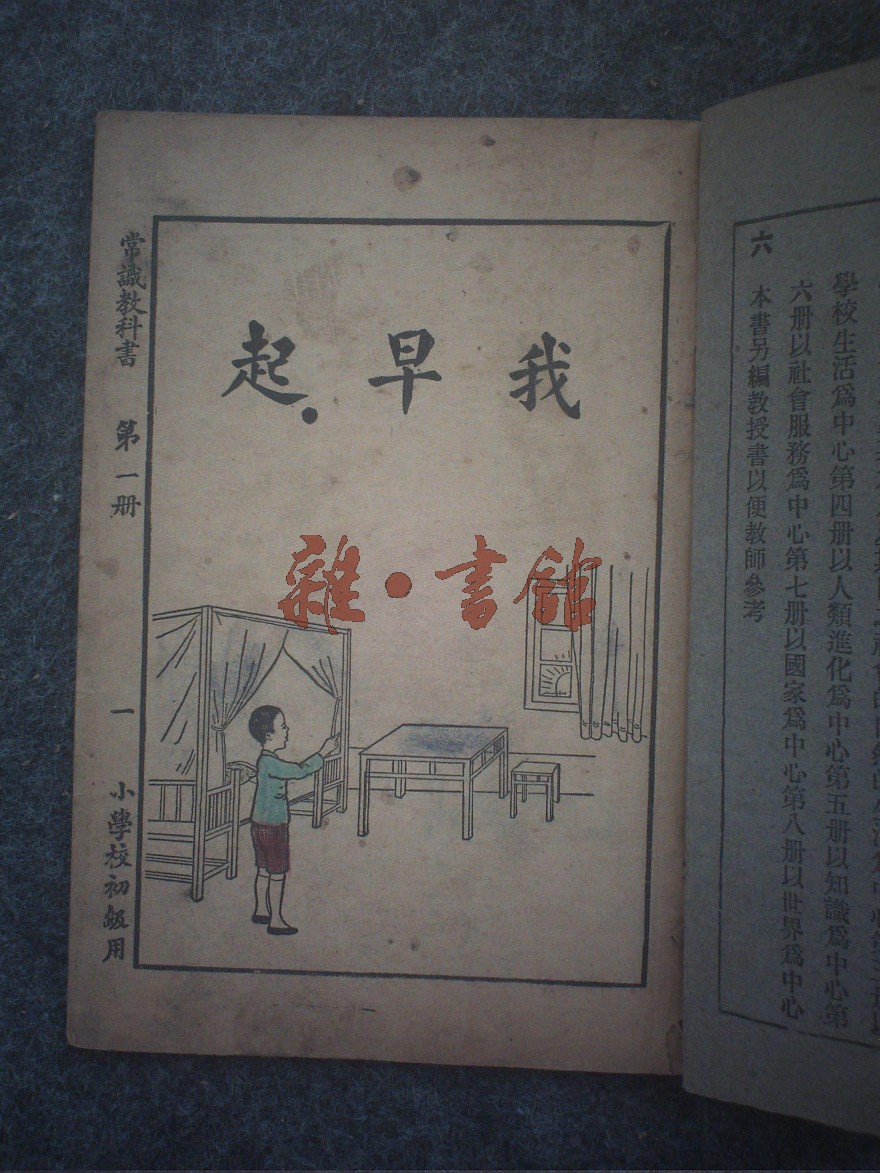 學校生活爲中心第四册以人類進化爲中心第五册以知識爲中心第
六册以社會服務爲中心第七册以國家爲中心第八册以世界爲中心
六 本書另編教授書以便教師參考
我早起
常識教科書 第一册 一 小學校初級用
雜·書館